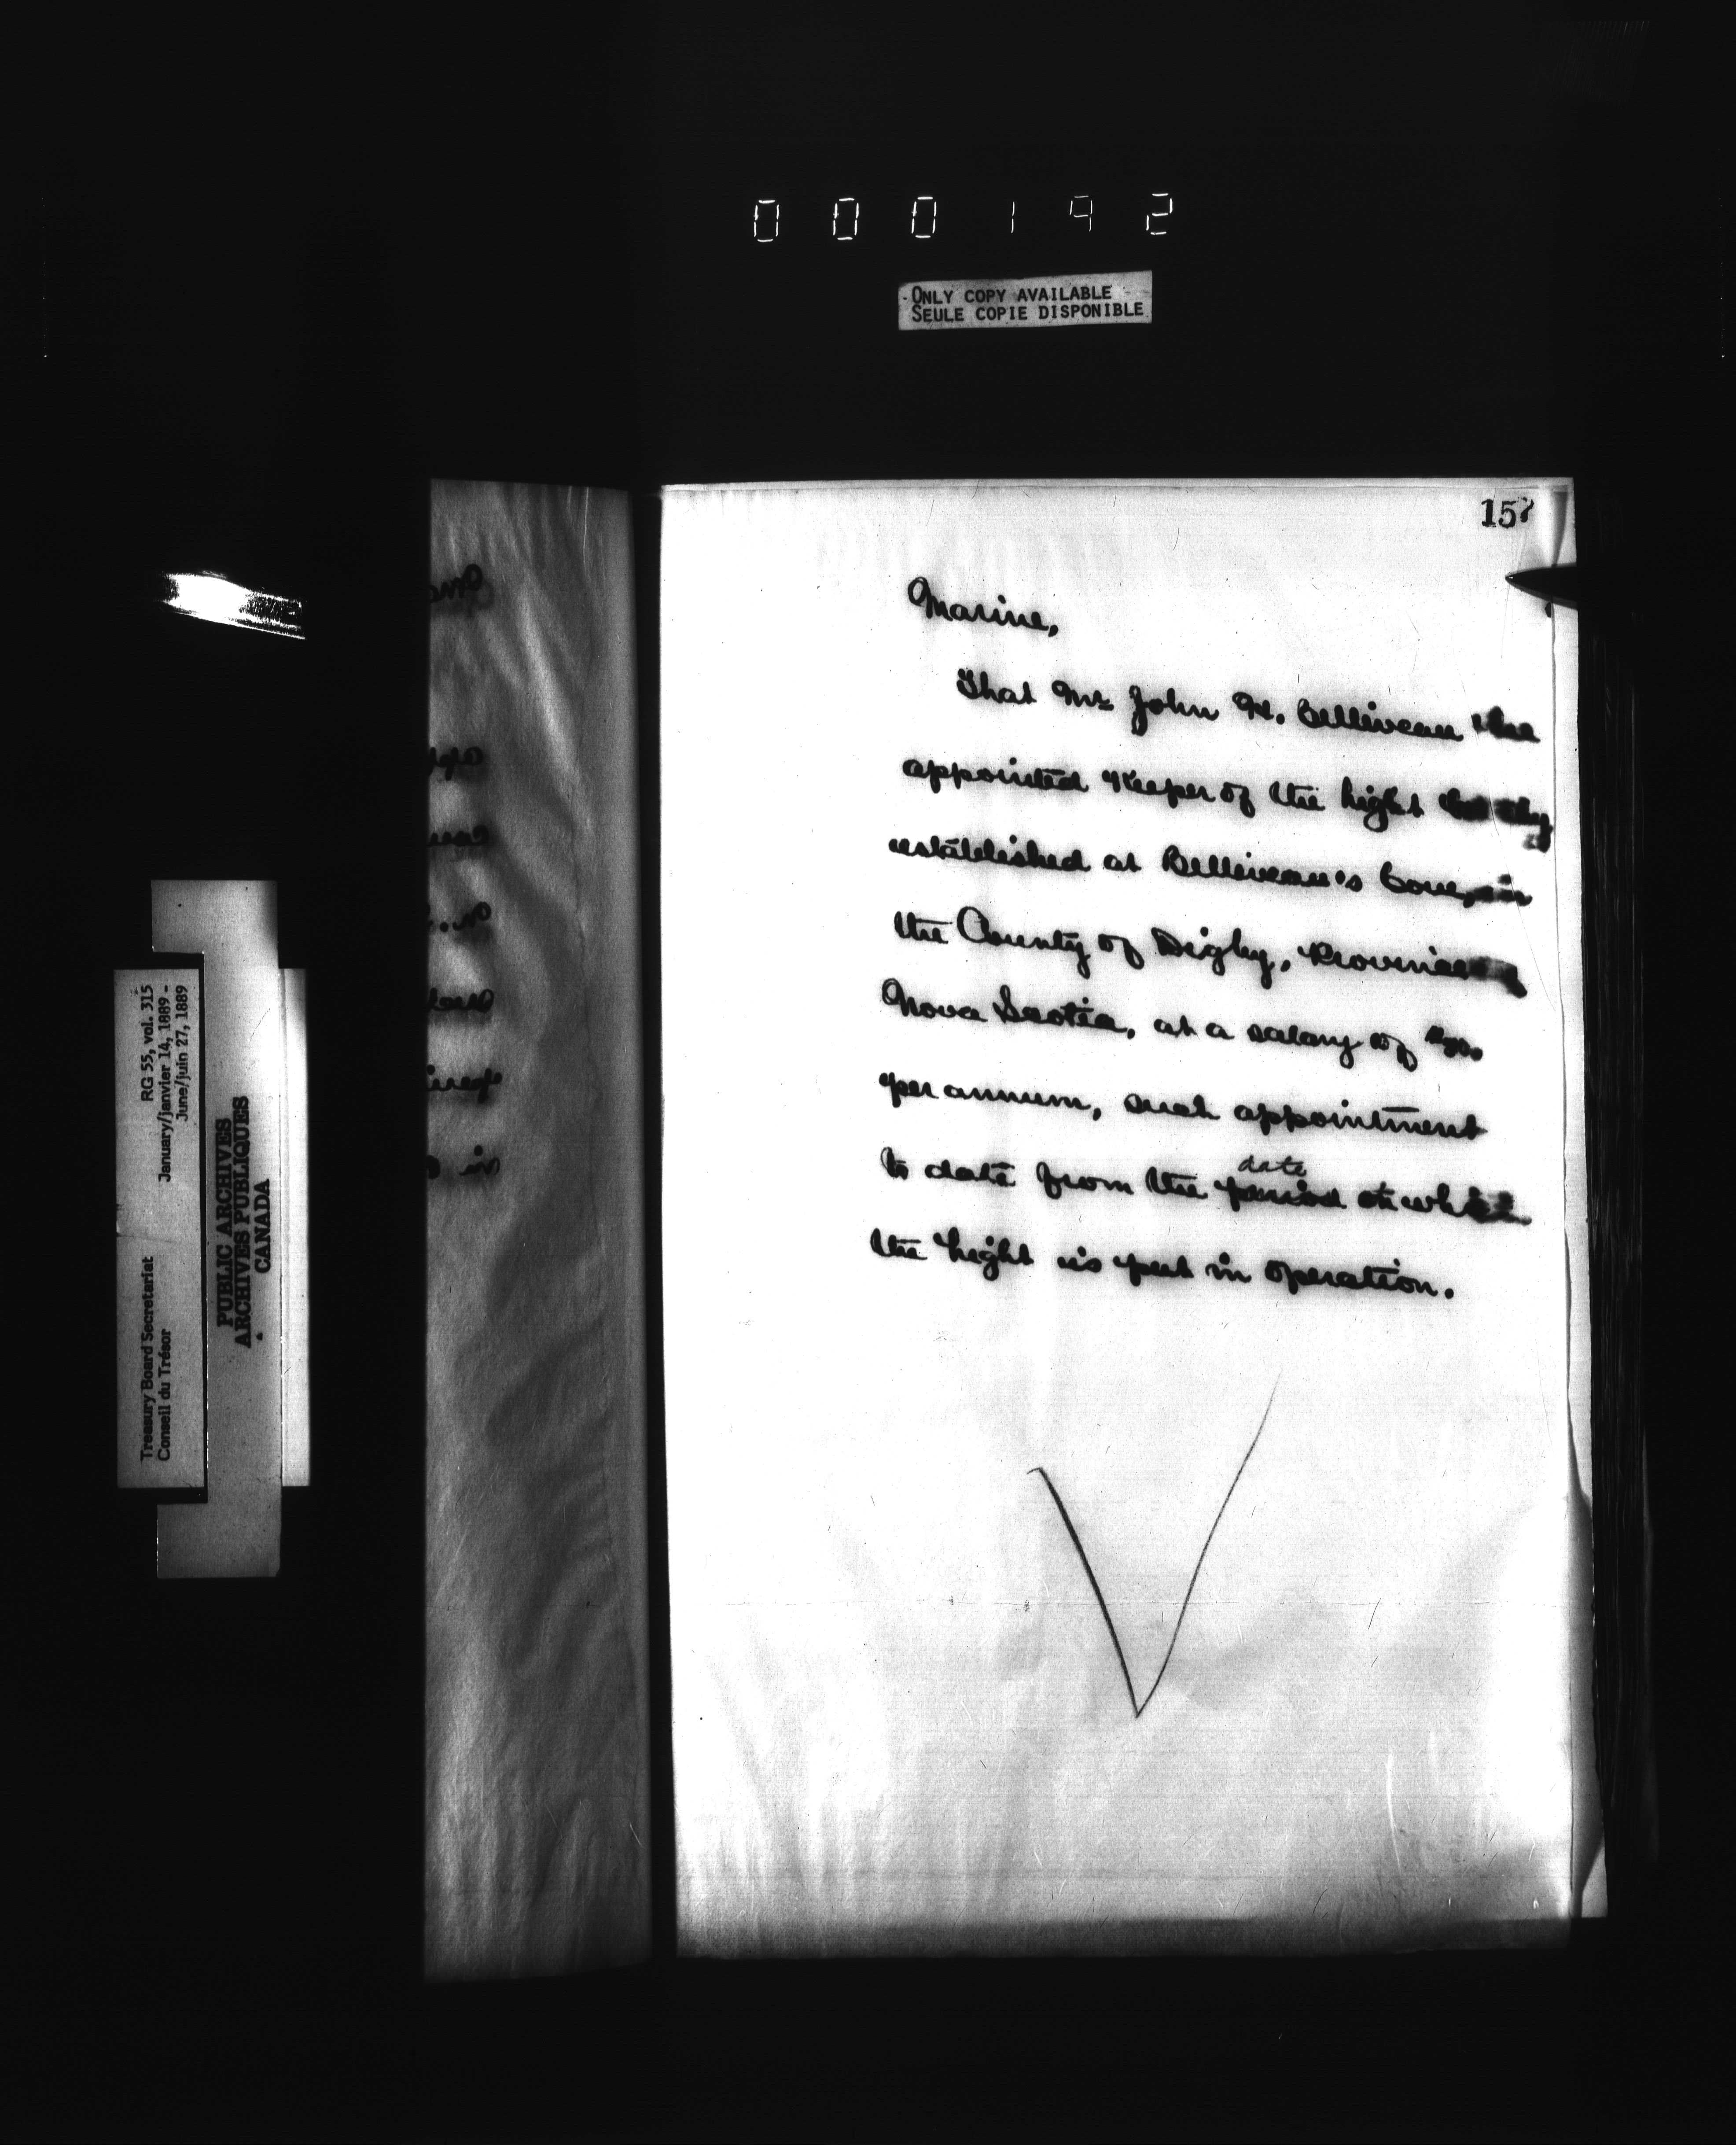 000192
ONLY COPY AVAILABLE
SEULE COPIE DISPONIBLE
157
Marine,
That Mr John H. Belliveau be
appointed Keeper of the Light
established at Belliveau's Cove, in
the County of Digby, Province of
Nova Scotia, at a salary of
per annum, such appointment
date
to date from the period at which
the Light is put in operation.
RG 55, vol. 315
January/janvier 14, 1889 -
June/juin 27, 1889
Treasury Board Secretariat
Conseil du Trésor
PUBLIC ARCHIVES
ARCHIVES PUBLIQUES
CANADA